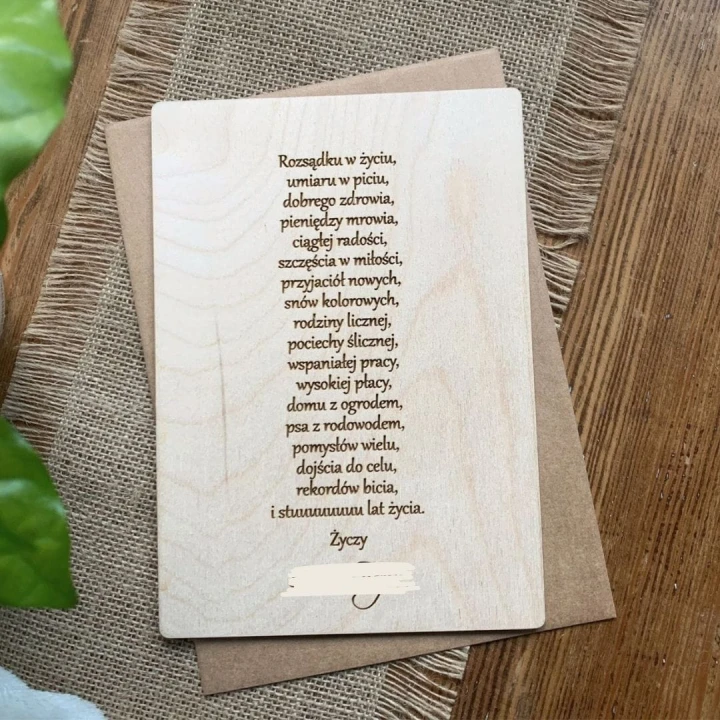 Rozsądku w życiu,
umiaru w piciu,
dobrego zdrowia,
pieniędzy mrowia,
ciągłej radości,
szczęścia w miłości,
przyjaciół nowych,
snów kolorowych,
rodziny licznej,
pociechy ślicznej,
wspaniałej pracy,
wysokiej płacy,
domu z ogrodem,
psa z rodowodem,
pomysłów wielu,
dojścia do celu,
rekordów bicia,
i stuuuuuuuu lat życia.
Życzy